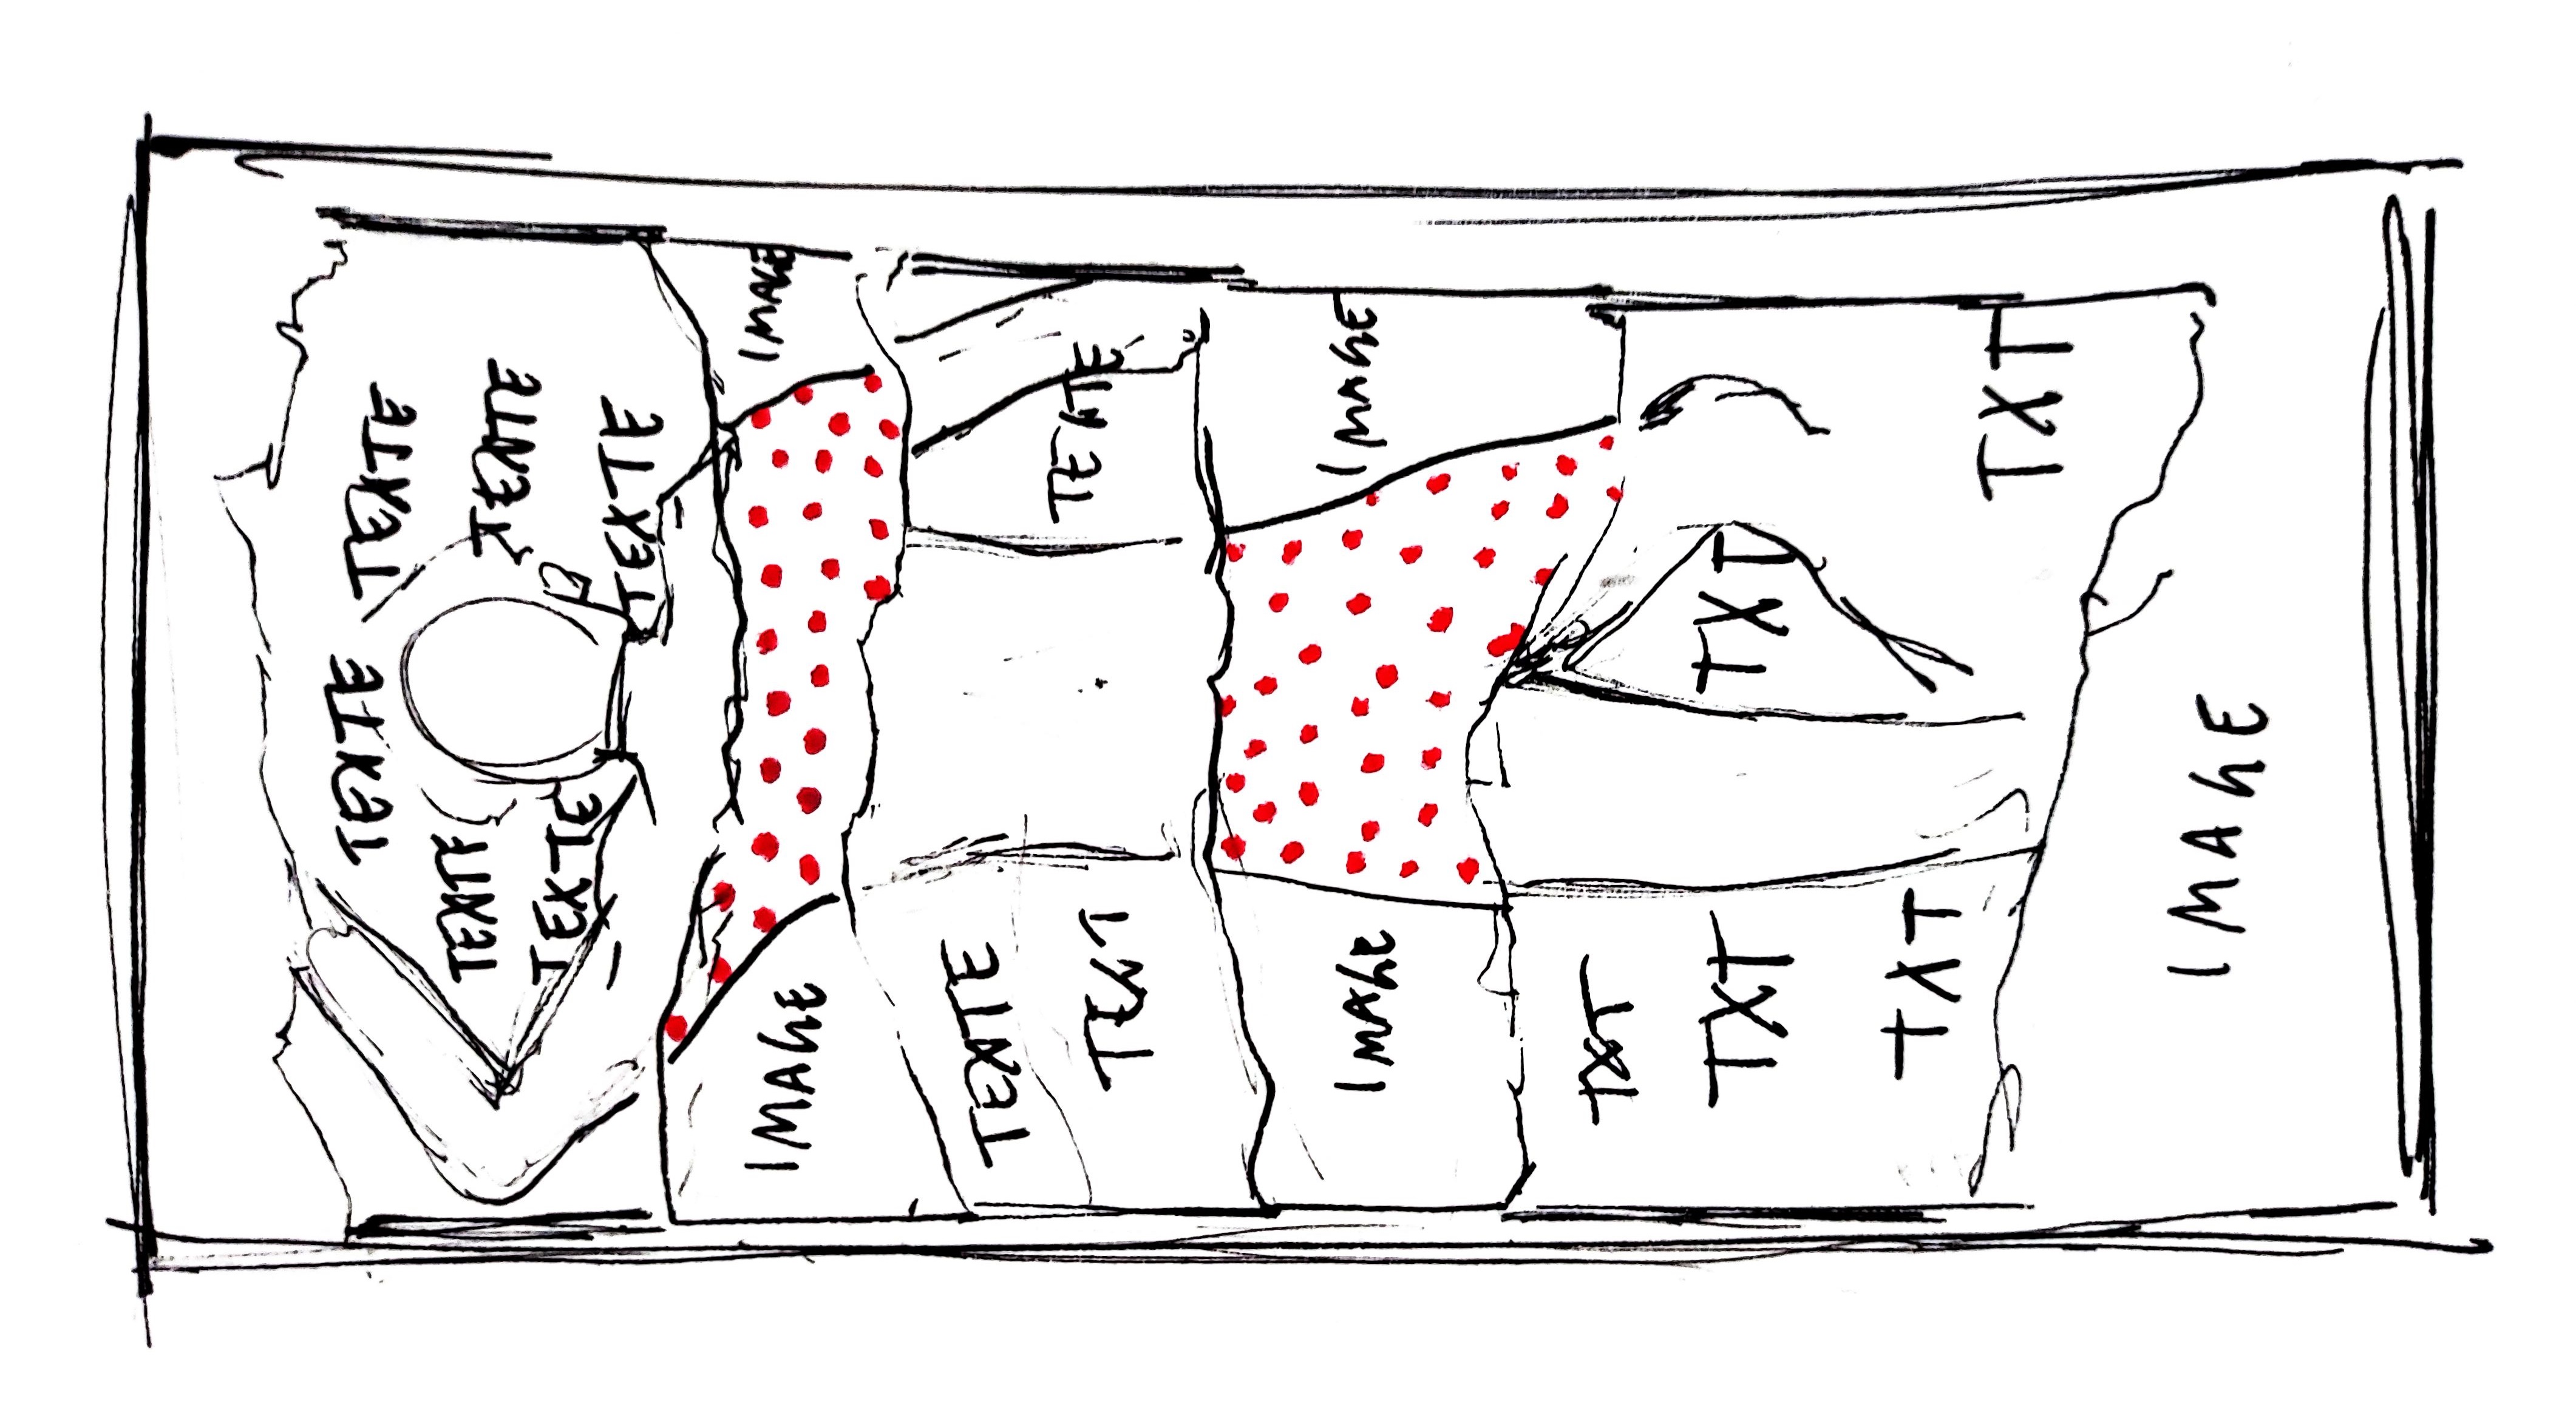 TEXTE TEXTE
TEXTE TEXTE
TEXTE TEXTE
IMAGE IMAGE
TEXTE TEXTE
IMAGE IMAGE
TXT
TXT TXT
TXT TXT
IMAGE